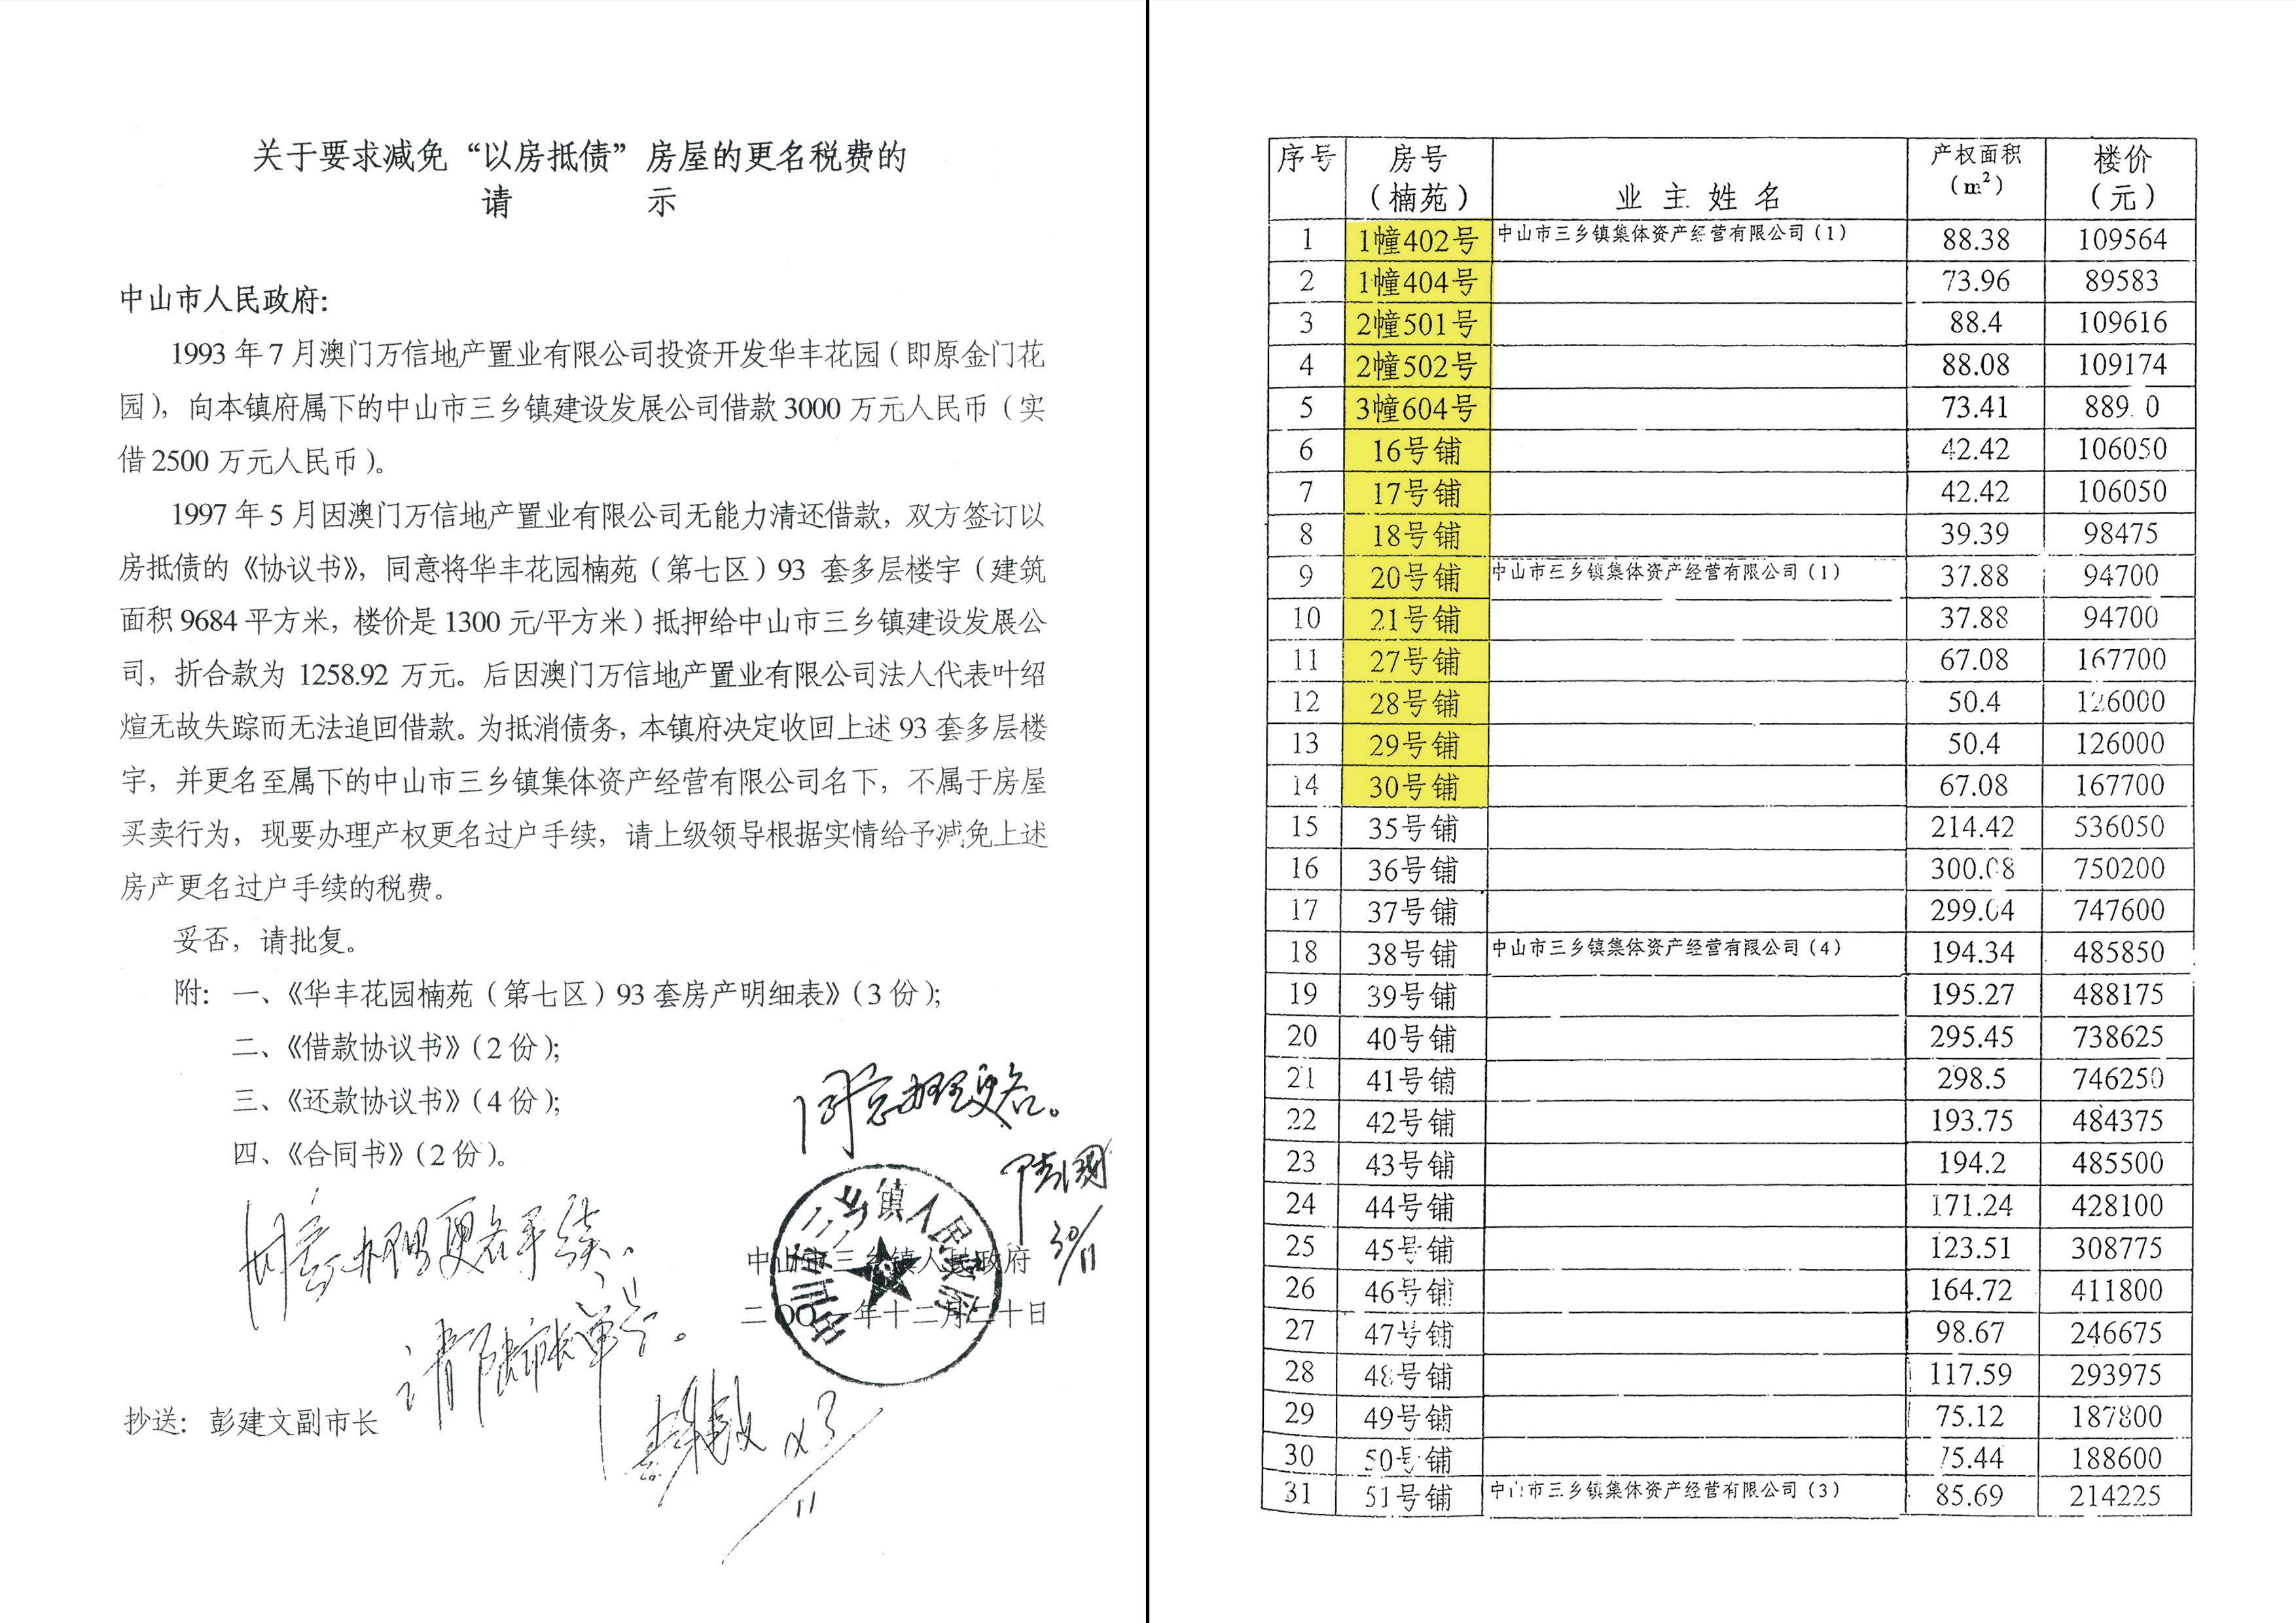 关于要求减免“以房抵债”房屋的更名税费的
请 示
中山市人民政府：
1993 年 7 月澳门万信地产置业有限公司投资开发华丰花园（即原金门花
园），向本镇府属下的中山市三乡镇建设发展公司借款 3000 万元人民币（实
借 2500 万元人民币）。
1997 年 5 月因澳门万信地产置业有限公司无能力清还借款，双方签订以
房抵债的《协议书》，同意将华丰花园楠苑（第七区）93 套多层楼宇（建筑
面积 9684 平方米，楼价是 1300 元/平方米）抵押给中山市三乡镇建设发展公
司，折合款为 1258.92 万元。后因澳门万信地产置业有限公司法人代表叶绍
煊无故失踪而无法追回借款。为抵消债务，本镇府决定收回上述 93 套多层楼
宇，并更名至属下的中山市三乡镇集体资产经营有限公司名下，不属于房屋
买卖行为，现要办理产权更名过户手续，请上级领导根据实情给予减免上述
房产更名过户手续的税费。
妥否，请批复。
附：一、《华丰花园楠苑（第七区）93 套房产明细表》（3 份）；
二、《借款协议书》（2 份）；
三、《还款协议书》（4 份）；
四、《合同书》（2 份）。
同意办理更名。
30/11
中山市三乡镇人民政府
年十二月二十日
同意办理更名手续。
抄送：彭建文副市长
序号 房号（楠苑） 业主姓名 产权面积（m²） 楼价（元）
1 1幢402号 中山市三乡镇集体资产经营有限公司（1） 88.38 109564
2 1幢404号 73.96 89583
3 2幢501号 88.4 109616
4 2幢502号 88.08 109174
5 3幢604号 73.41
6 16号铺 42.42 106050
7 17号铺 42.42 106050
8 18号铺 39.39 98475
9 20号铺 中山市三乡镇集体资产经营有限公司（1） 37.88 94700
10 21号铺 37.88 94700
11 27号铺 67.08 167700
12 28号铺 50.4 126000
13 29号铺 50.4 126000
14 30号铺 67.08 167700
15 35号铺 214.42 536050
16 36号铺 300.08 750200
17 37号铺 299.04 747600
18 38号铺 中山市三乡镇集体资产经营有限公司（4） 194.34 485850
19 39号铺 195.27 488175
20 40号铺 295.45 738625
21 41号铺 298.5 746250
22 42号铺 193.75 484375
23 43号铺 194.2 485500
24 44号铺 171.24 428100
25 45号铺 123.51 308775
26 46号铺 164.72 411800
27 47号铺 98.67 246675
28 48号铺 117.59 293975
29 49号铺 75.12 187800
30 50号铺 75.44 188600
31 51号铺 中山市三乡镇集体资产经营有限公司（3） 85.69 214225